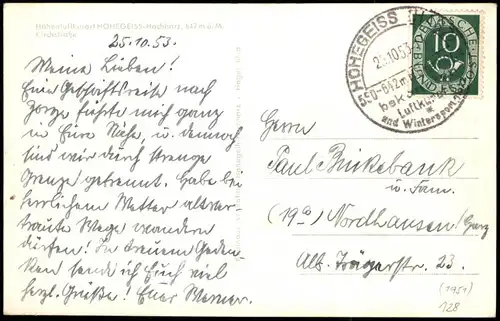 Höhenluftkurort HOHEGEISS-Hochharz, 642 m ü. M.
Kirchstraße
25.10.53.
Meine Lieben!
Eine Geschäftsreise nach
Zorge führte mich ganz
in Eure Nähe, u. dennoch
sind wir durch strenge
Grenze getrennt. Habe bei
herrlichem Wetter altver-
traute Wege wandern
dürfen! In treuem Geden-
ken sende ich Euch viel
herzl. Grüße! Euer Werner.
HOHEGEISS
25.10.53
550-642 m
Luftkur
und Wintersport
DEUTSCHE
BUNDESPOST
10
Herrn
Paul Binkebank
u. Fam.
(19a) Nordhausen/Harz
Alb. Trägerstr. 23.
(1951)
128